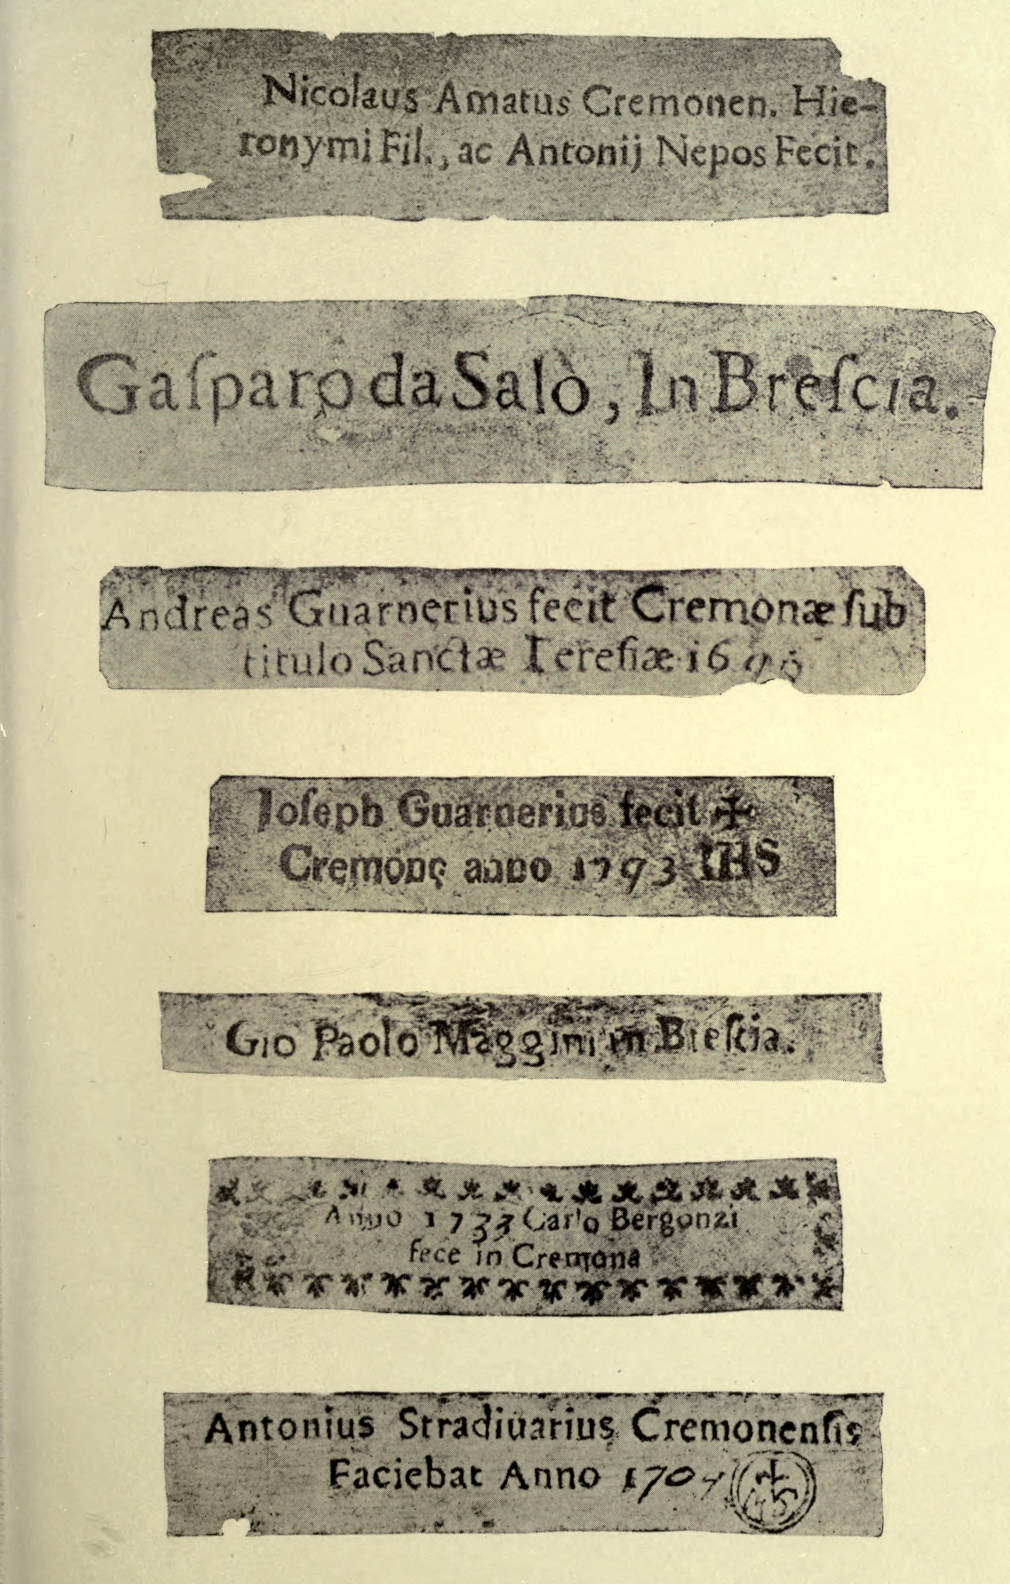 Nicolaus Amatus Cremonen. Hie-
ronymi Fil., ac Antonij Nepos Fecit.
Gaſparo da Salò, In Breſcia.
Andreas Guarnerius fecit Cremonæ ſub
titulo Sanctæ Tereſiæ
Ioſeph Guarnerius fecit ✠
Cremonę anno 1793 IHS
Gio Paolo Maggini in Breſcia.
Anno 1733 Carlo Bergonzi
fece in Cremona
Antonius Stradiuarius Cremonenſis
Faciebat Anno